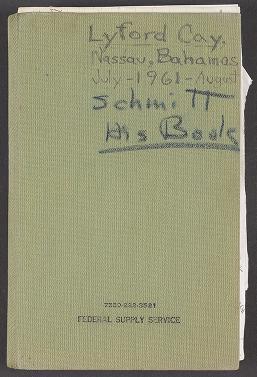 Lyford Cay.
Nassau, Bahamas
July-1961-August
Schmitt
His Book
7530-222-3521
FEDERAL SUPPLY SERVICE